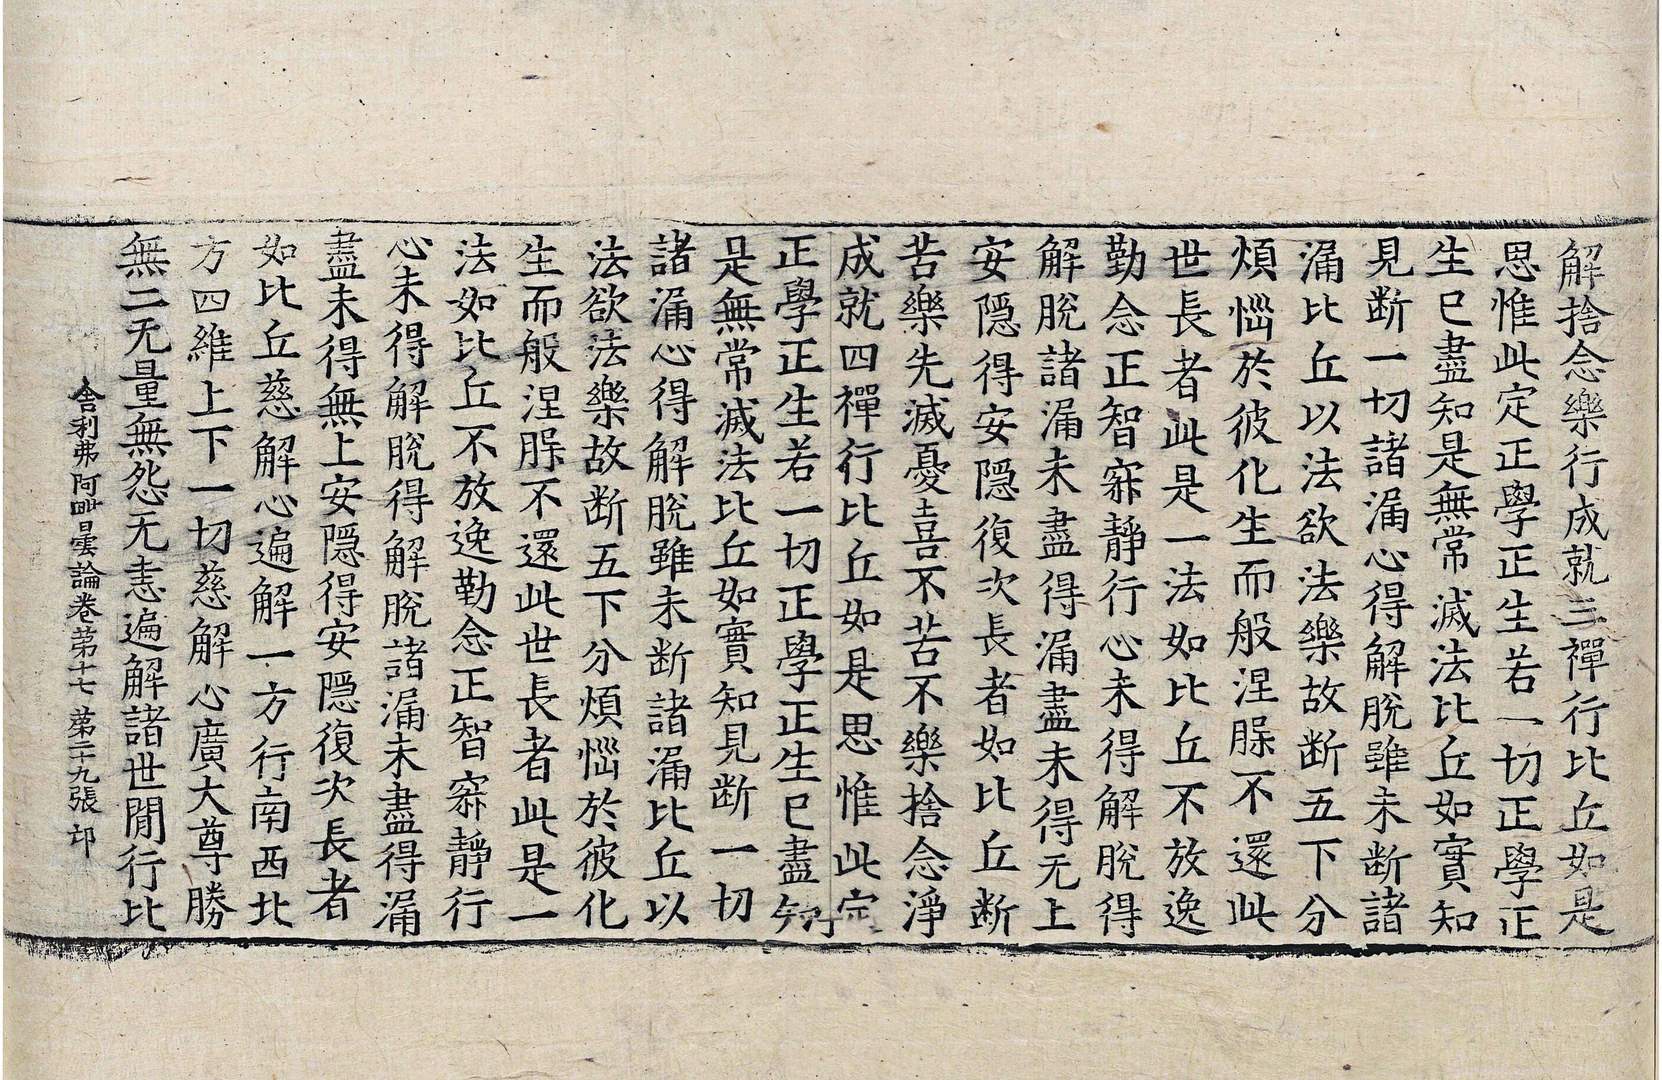 解捨念樂行成就三禪行比丘如是
思惟此定正學正生若一切正學正
生已盡知是無常滅法比丘如實知
見断一切諸漏心得解脫雖未断諸
漏比丘以法欲法樂故断五下分
煩惱於彼化生而般涅𦙾不還此
世長者此是一法如比丘不放逸
勤念正智寂靜行心未得解脫得
解脫諸漏未盡得漏盡未得无上
安隱得安隱復次長者如比丘断
苦樂先滅憂喜不苦不樂捨念淨
成就四禪行比丘如是思惟此定
正學正生若一切正學正生已盡知
是無常滅法比丘如實知見断一切
諸漏心得解脫雖未断諸漏比丘以
法欲法樂故断五下分煩惱於彼化
生而般涅𦙾不還此世長者此是一
法如比丘不放逸勤念正智寂靜行
心未得解脫得解脫諸漏未盡得漏
盡未得無上安隱得安隱復次長者
如比丘慈解心遍解一方行南西北
方四維上下一切慈解心廣大尊勝
無二无量無怨无恚遍解諸世間行比
舍利弗阿毗曇論卷第十七 第二十九張 㔽